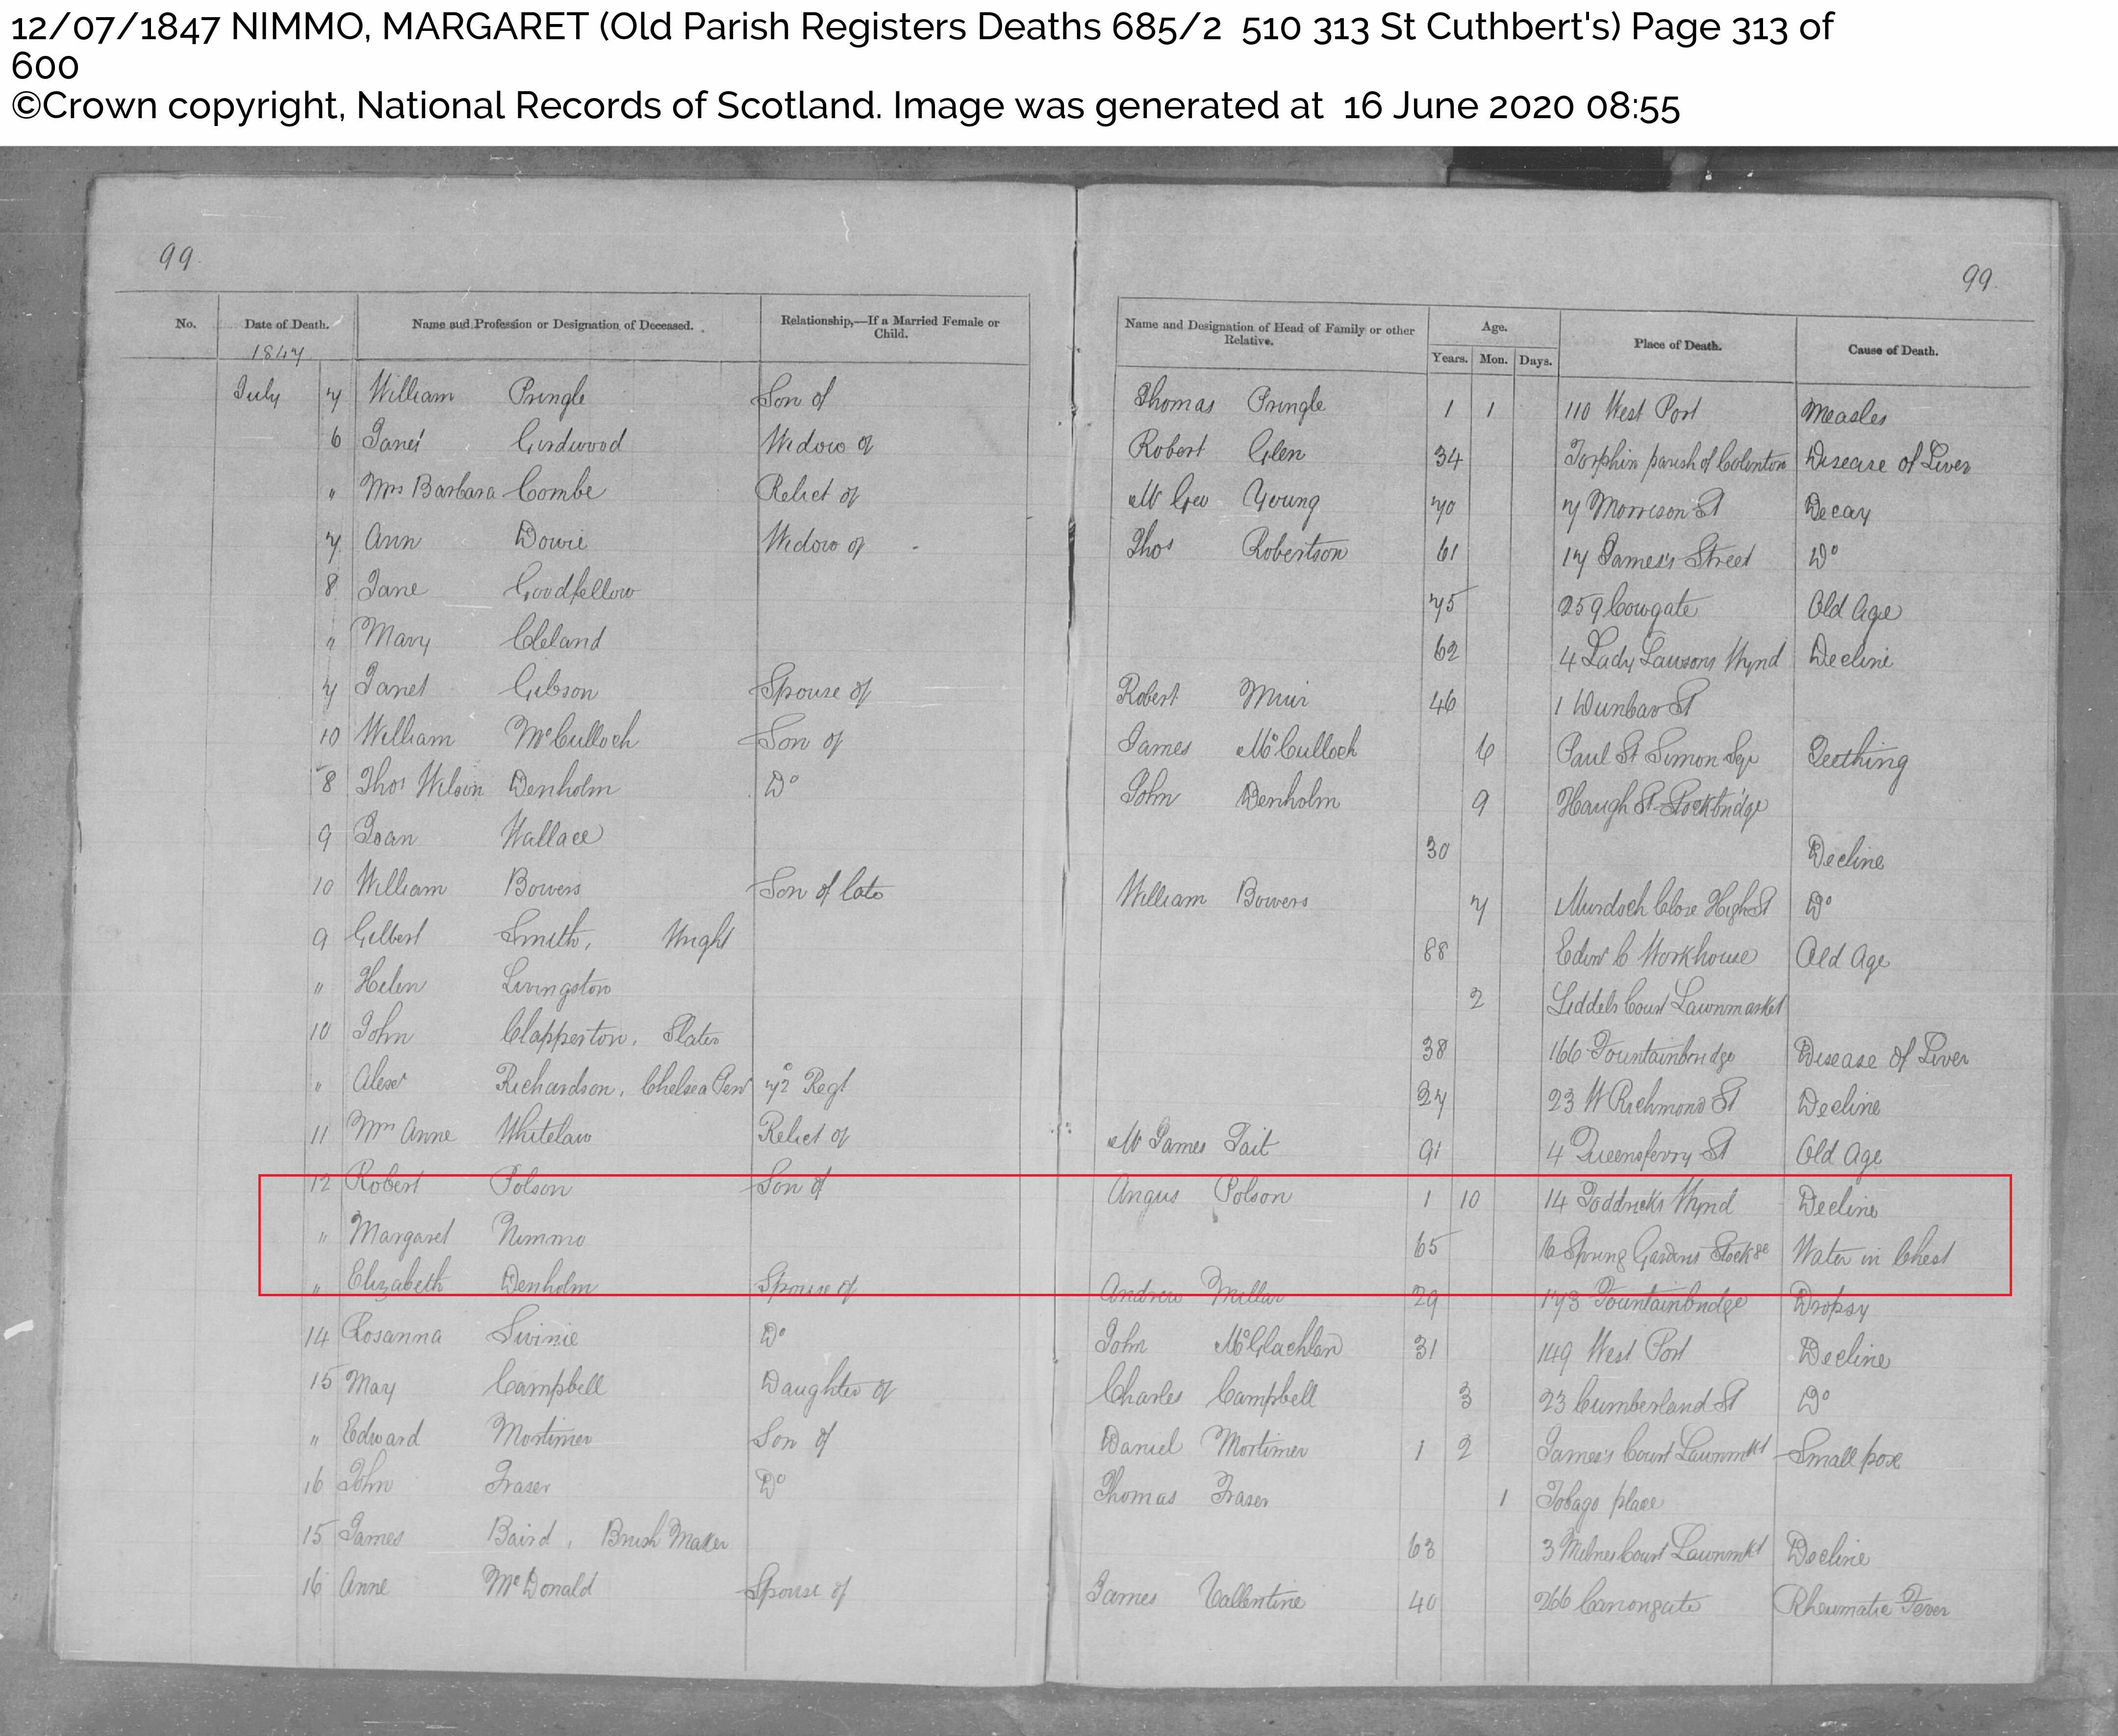 12/07/1847 NIMMO, MARGARET (Old Parish Registers Deaths 685/2 510 313 St Cuthbert's) Page 313 of
600
©Crown copyright, National Records of Scotland. Image was generated at 16 June 2020 08:55
99 99
No. Date of Death. Name and Profession or Designation of Deceased. Relationship,—If a Married Female or Child. Name and Designation of Head of Family or other Relative. Age. Years. Mon. Days. Place of Death. Cause of Death.
1847
July 7 William Pringle Son of Thomas Pringle 1 1 110 West Port Measles
6 Janet Girdwood Widow of Robert Glen 34 Torphin parish of Colinton Disease of Liver
" Mrs Barbara Combe Relict of Mr Geo Young 70 7 Morrison St Decay
7 Ann Dowie Widow of Thos Robertson 61 17 James's Street Do
8 Jane Goodfellow 75 259 Cowgate Old Age
" Mary Cleland 62 4 Lady Lawsons Wynd Decline
7 Janet Gibson Spouse of Robert Muir 46 1 Dunbar St
10 William McCulloch Son of James McCulloch 6 Paul St Simon Sqr Teething
8 Thos Wilson Denholm Do John Denholm 9 Haugh St Stockbridge
9 Joan Wallace 30 Decline
10 William Bowers Son of late William Bowers 7 Murdoch Close High St Do
9 Gilbert Smith, Wright 88 Edinr C Workhouse Old Age
" Helen Livingston 2 Liddels Court Lawnmarket
10 John Clapperton, Slater 38 166 Fountainbridge Disease of Liver
" Alexr Richardson, Chelsea Penr 72 Regt 27 23 W Richmond St Decline
11 Mrs Anne Whitelaw Relict of Mr James Tait 91 4 Queensferry St Old Age
12 Robert Polson Son of Angus Polson 1 10 14 Toddricks Wynd Decline
" Margaret Nimmo 65 Spring Gardens Stockge Water in Chest
" Elizabeth Denholm Spouse of Andrew Millar 29 173 Fountainbridge Dropsy
14 Rosanna Swinie Do John McGlachlan 31 149 West Port Decline
15 May Campbell Daughter of Charles Campbell 3 23 Cumberland St Do
" Edward Mortimer Son of Daniel Mortimer 1 2 James's Court Lawnmkt Small pox
16 John Fraser Do Thomas Fraser 1 Tobago place
15 James Baird, Brush Maker 63 3 Milnes Court Lawnmkt Decline
16 Anne McDonald Spouse of James Vallentine 40 266 Canongate Rheumatic Fever